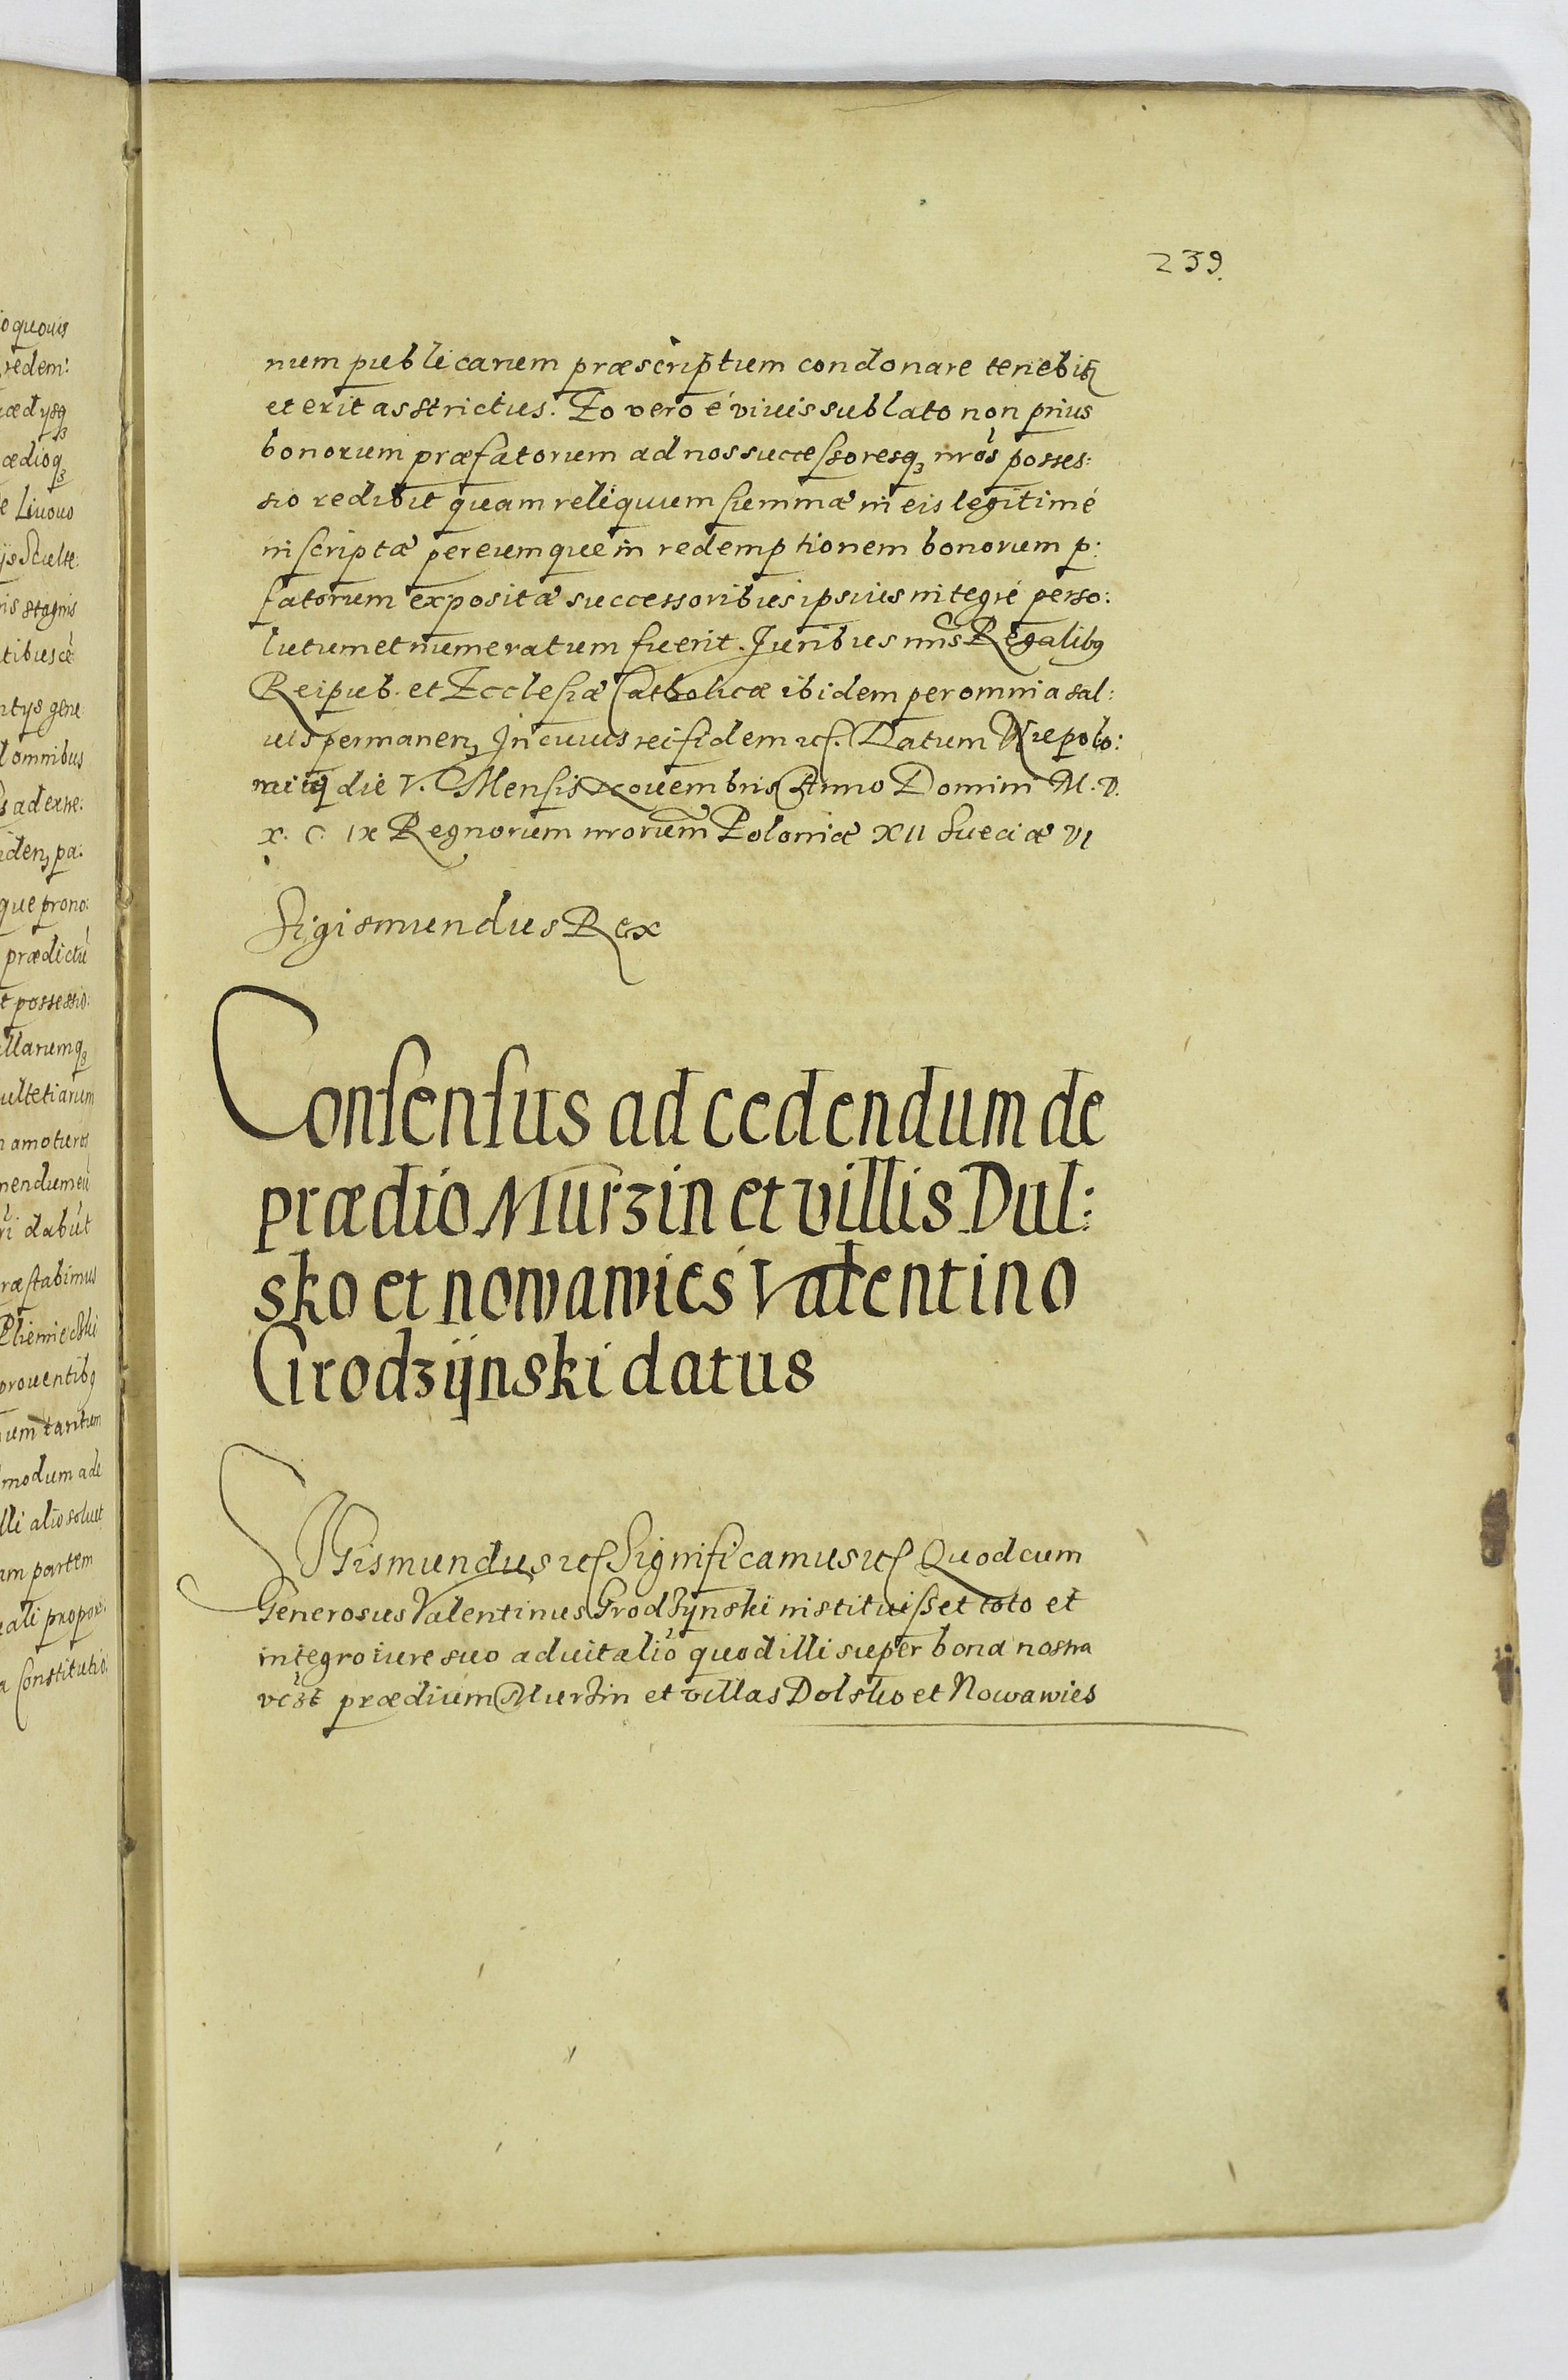 239.
num publicarum præscriptum condonare tenebitꝛ
et erit asstrictus. Eo vero é viuis sublato non prius
bonorum præfatorum ad nos successoresqꝫ nrõs posses:
sio redibit quam reliquum summæ in eis legitimé
inscriptæ pereumque in redemptionem bonorum p:
fatorum expositæ successoribus ipsius integré perso:
lutum et numeratum fuerit. Juribus nr̃is Regalibꝰ
Reipub. et Ecclesiæ Catholicæ ibidem per omnia sal:
uis permanenꝫ In cuius rei fidem ucſ. Datum Niepolo:
die V. Mensis Nouembris Anno Domini M. D.
X. C IX Regnorum nrorum Poloniæ XII Sueciæ VI
Sigismundus Rex
Consensus ad cedendum de
prædio Murzin et villis Dul:
sko et nowawieś Valentino
Grodzijnski datus
SIGismundus ucſ Significamus ucſ Quod cum
Generosus Valentinus Grodzynski instituisset toto et
integro iure suo aduitalio quod illi super bona nostra
vc̃zt prædium Murzin et villas Dolsko et Nowawies
o quouis
redem:
ædysqꝫ
ædioqꝫ
e Liuouo
ijs Sculte:
is stagnis
tibus cẽ
ntys gene
omnibus
s ad exne:
idenꝫ pa:
que prono:
prædictũ
t possessio:
illarumqꝫ
ultetiarum
amoturos
mendum eũ
ri dabũt
ræstabimus
Pliemiecski
prouentibꝰ
um tantum
modum ade
lli alio soluet
am partem
eali propor:
a Constitutio: